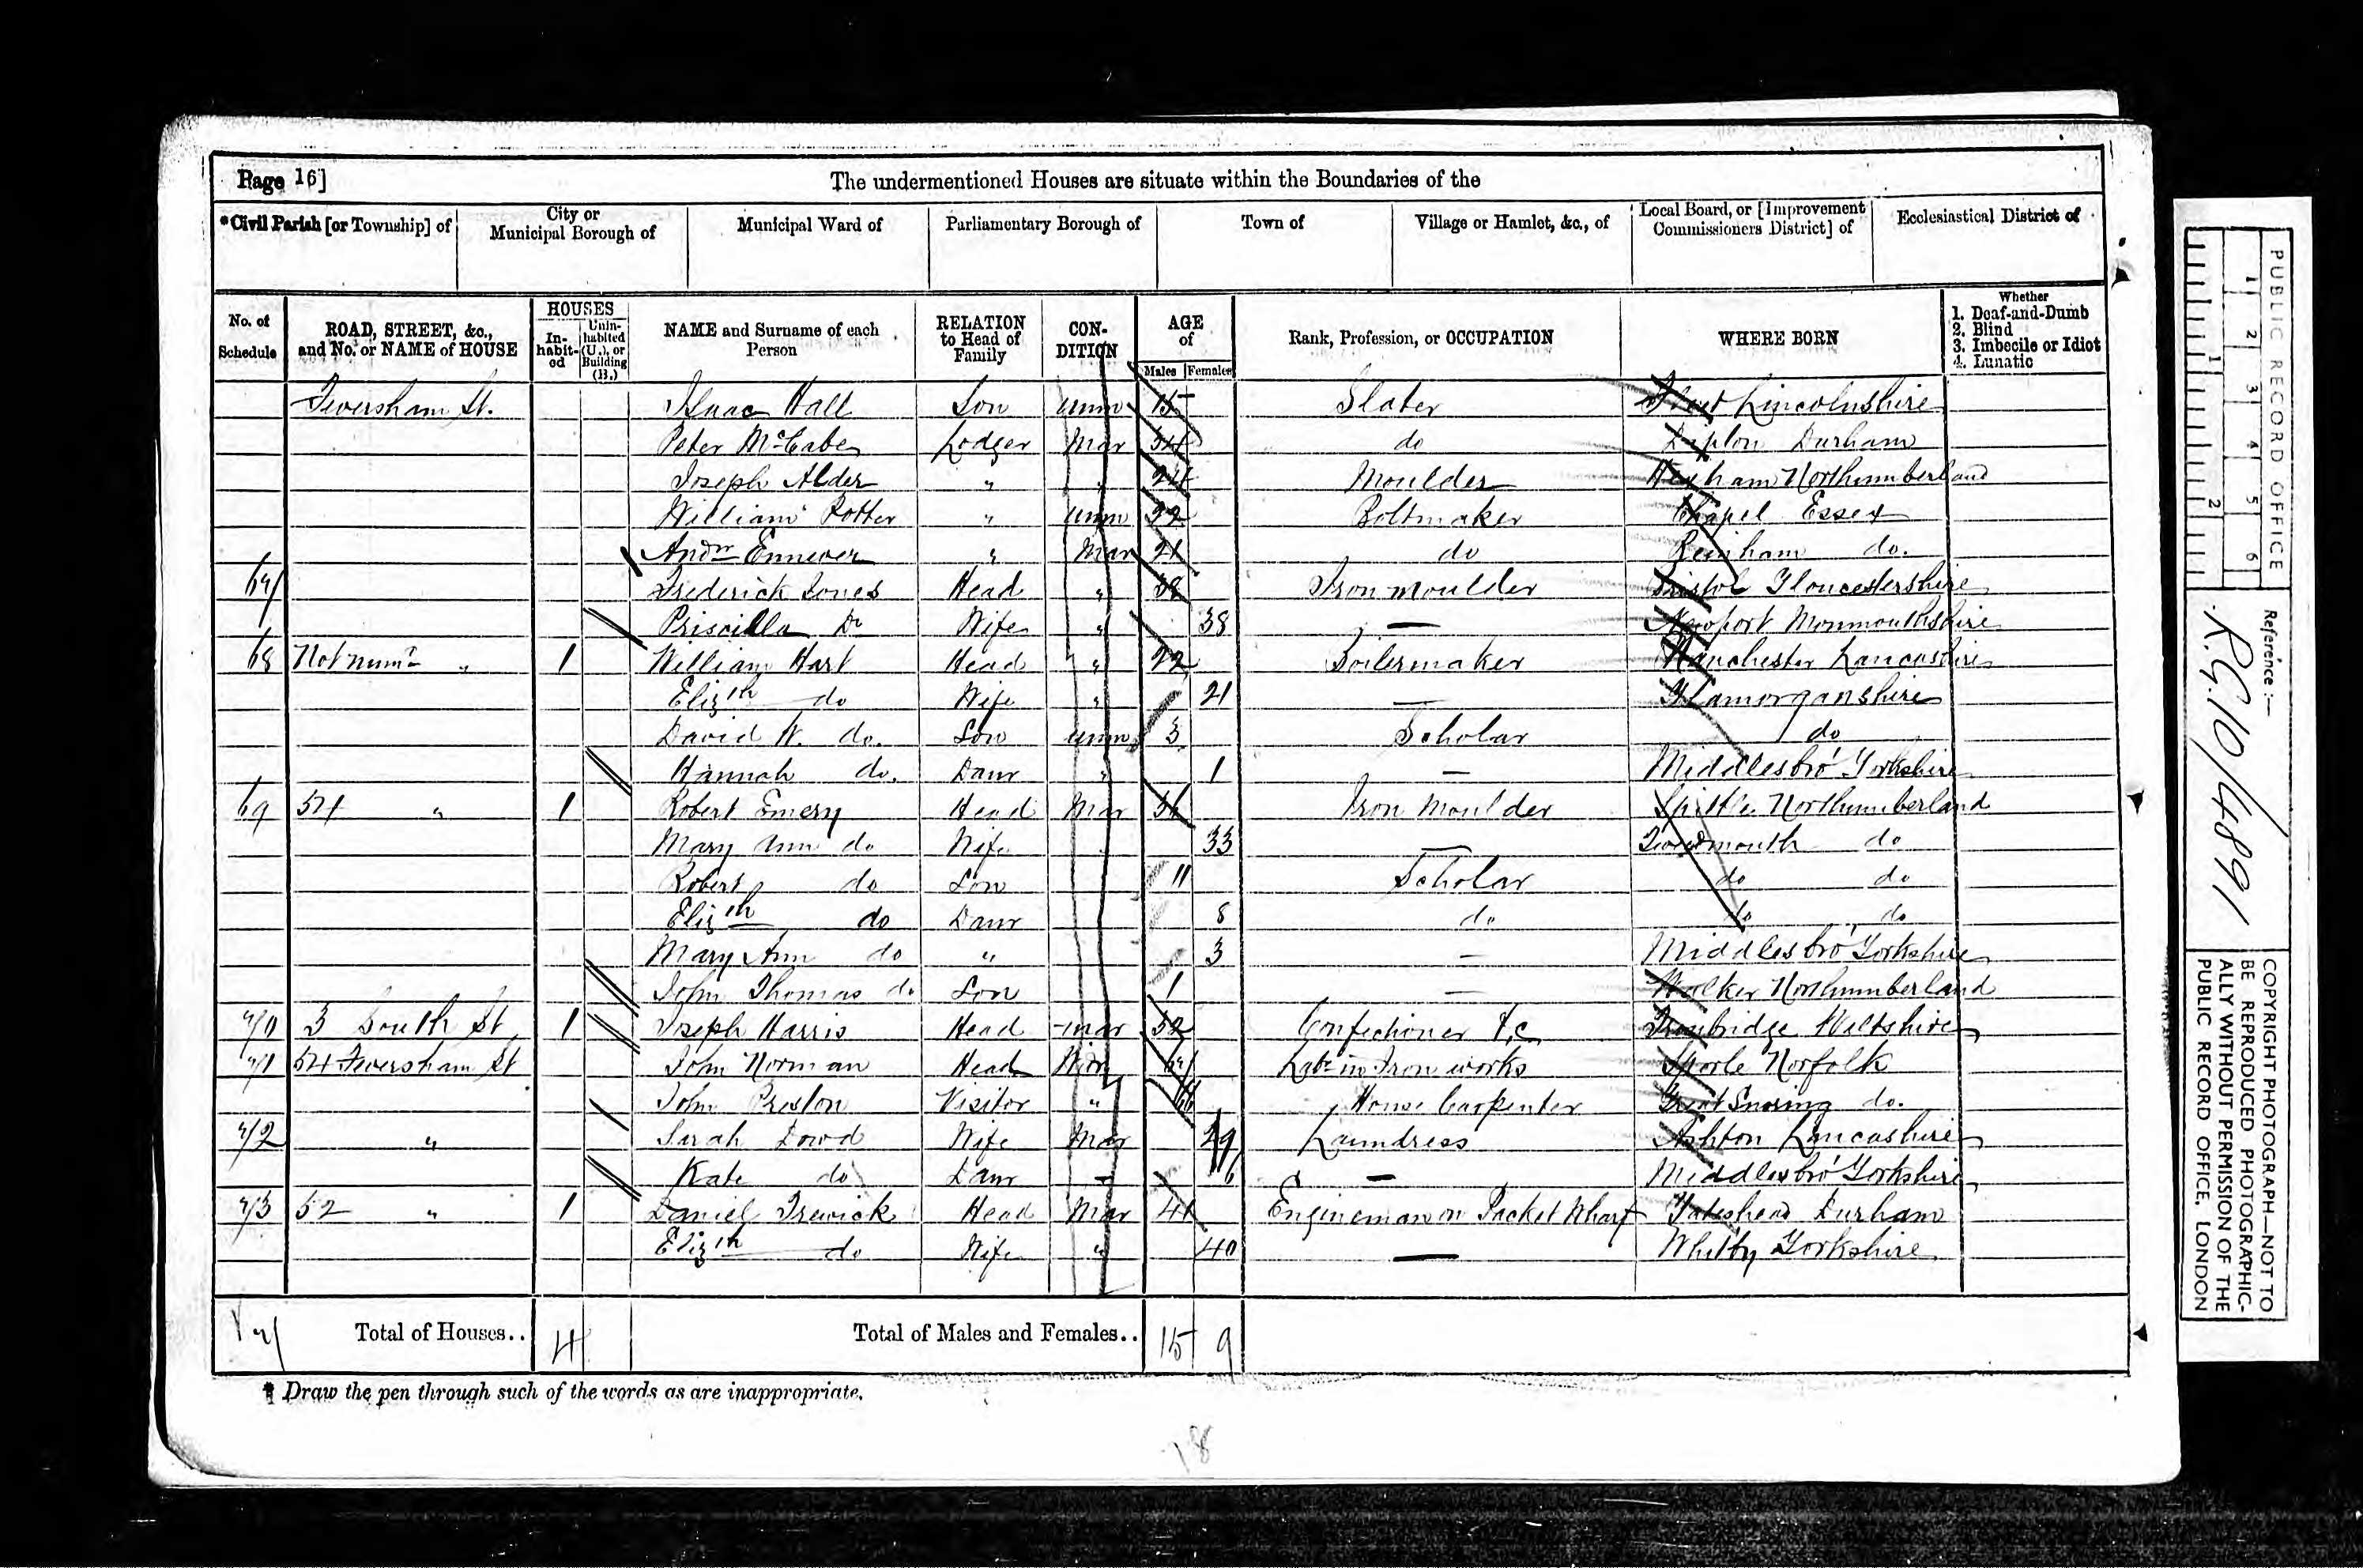 Page 16]
The undermentioned Houses are situate within the Boundaries of the
*Civil Parish [or Township] of
City or Municipal Borough of
Municipal Ward of
Parliamentary Borough of
Town of
Village or Hamlet, &c., of
Local Board, or [Improvement Commissioners District] of
Ecclesiastical District of
No. of Schedule
ROAD, STREET, &c., and No. or NAME of HOUSE
HOUSES
In-habit-ed
Unin-habited (U.), or Building (B.)
NAME and Surname of each Person
RELATION to Head of Family
CON-DITION
AGE of
Males Females
Rank, Profession, or OCCUPATION
WHERE BORN
Whether
1. Deaf-and-Dumb
2. Blind
3. Imbecile or Idiot
4. Lunatic
Feversham St. Isaac Hall Son Unm 15 Slater Lincolnshire
Peter McCabe Lodger Mar 34 do Durham
Joseph Alder " " 24 Moulder Hexham Northumberland
William Potter " Unm 22 Boltmaker Chapel Essex
Andw Ennever " Mar 21 do Rainham do.
67 Frederick Jones Head " 38 Iron moulder Bristol Gloucestershire
Priscilla Do Wife " 38 — Newport Monmouthshire
68 Not numd " 1 William Hart Head " 22 Boilermaker Manchester Lancashire
Elizth do Wife " 21 — Glamorganshire
David W. do. Son Unm 3 Scholar do
Hannah do. Daur " 1 — Middlesbro' Yorkshire
69 54 " 1 Robert Emery Head Mar 36 Iron Moulder Spittle Northumberland
Mary Ann do Wife 33 — Tweedmouth do
Robert do Son 11 Scholar do do
Elizth do Daur 8 do do do
Mary Ann do " 3 — Middlesbro' Yorkshire
John Thomas do Son 1 — Walker Northumberland
70 3 South St 1 Joseph Harris Head mar 52 Confectioner &c Trowbridge Wiltshire
71 54 Feversham St John Norman Head Widr 67 Labr in Iron works Sporle Norfolk
John Preston Visitor " 66 House Carpenter Great Snoring do.
72 " Sarah Dowd Wife Mar 29 Laundress Ashton Lancashire
Kate do Daur — 6 — Middlesbro' Yorkshire
73 52 " 1 Daniel Trewick Head Mar 41 Engineman on Packet Wharf Gateshead Durham
Elizth do Wife " 40 — Whitby Yorkshire
Total of Houses.. 4 Total of Males and Females.. 15 9
* Draw the pen through such of the words as are inappropriate.
18
PUBLIC RECORD OFFICE
1 2 3 4 5 6
1 2
Reference :—
R.G. 10/4891
COPYRIGHT PHOTOGRAPH—NOT TO
BE REPRODUCED PHOTOGRAPHIC-
ALLY WITHOUT PERMISSION OF THE
PUBLIC RECORD OFFICE, LONDON